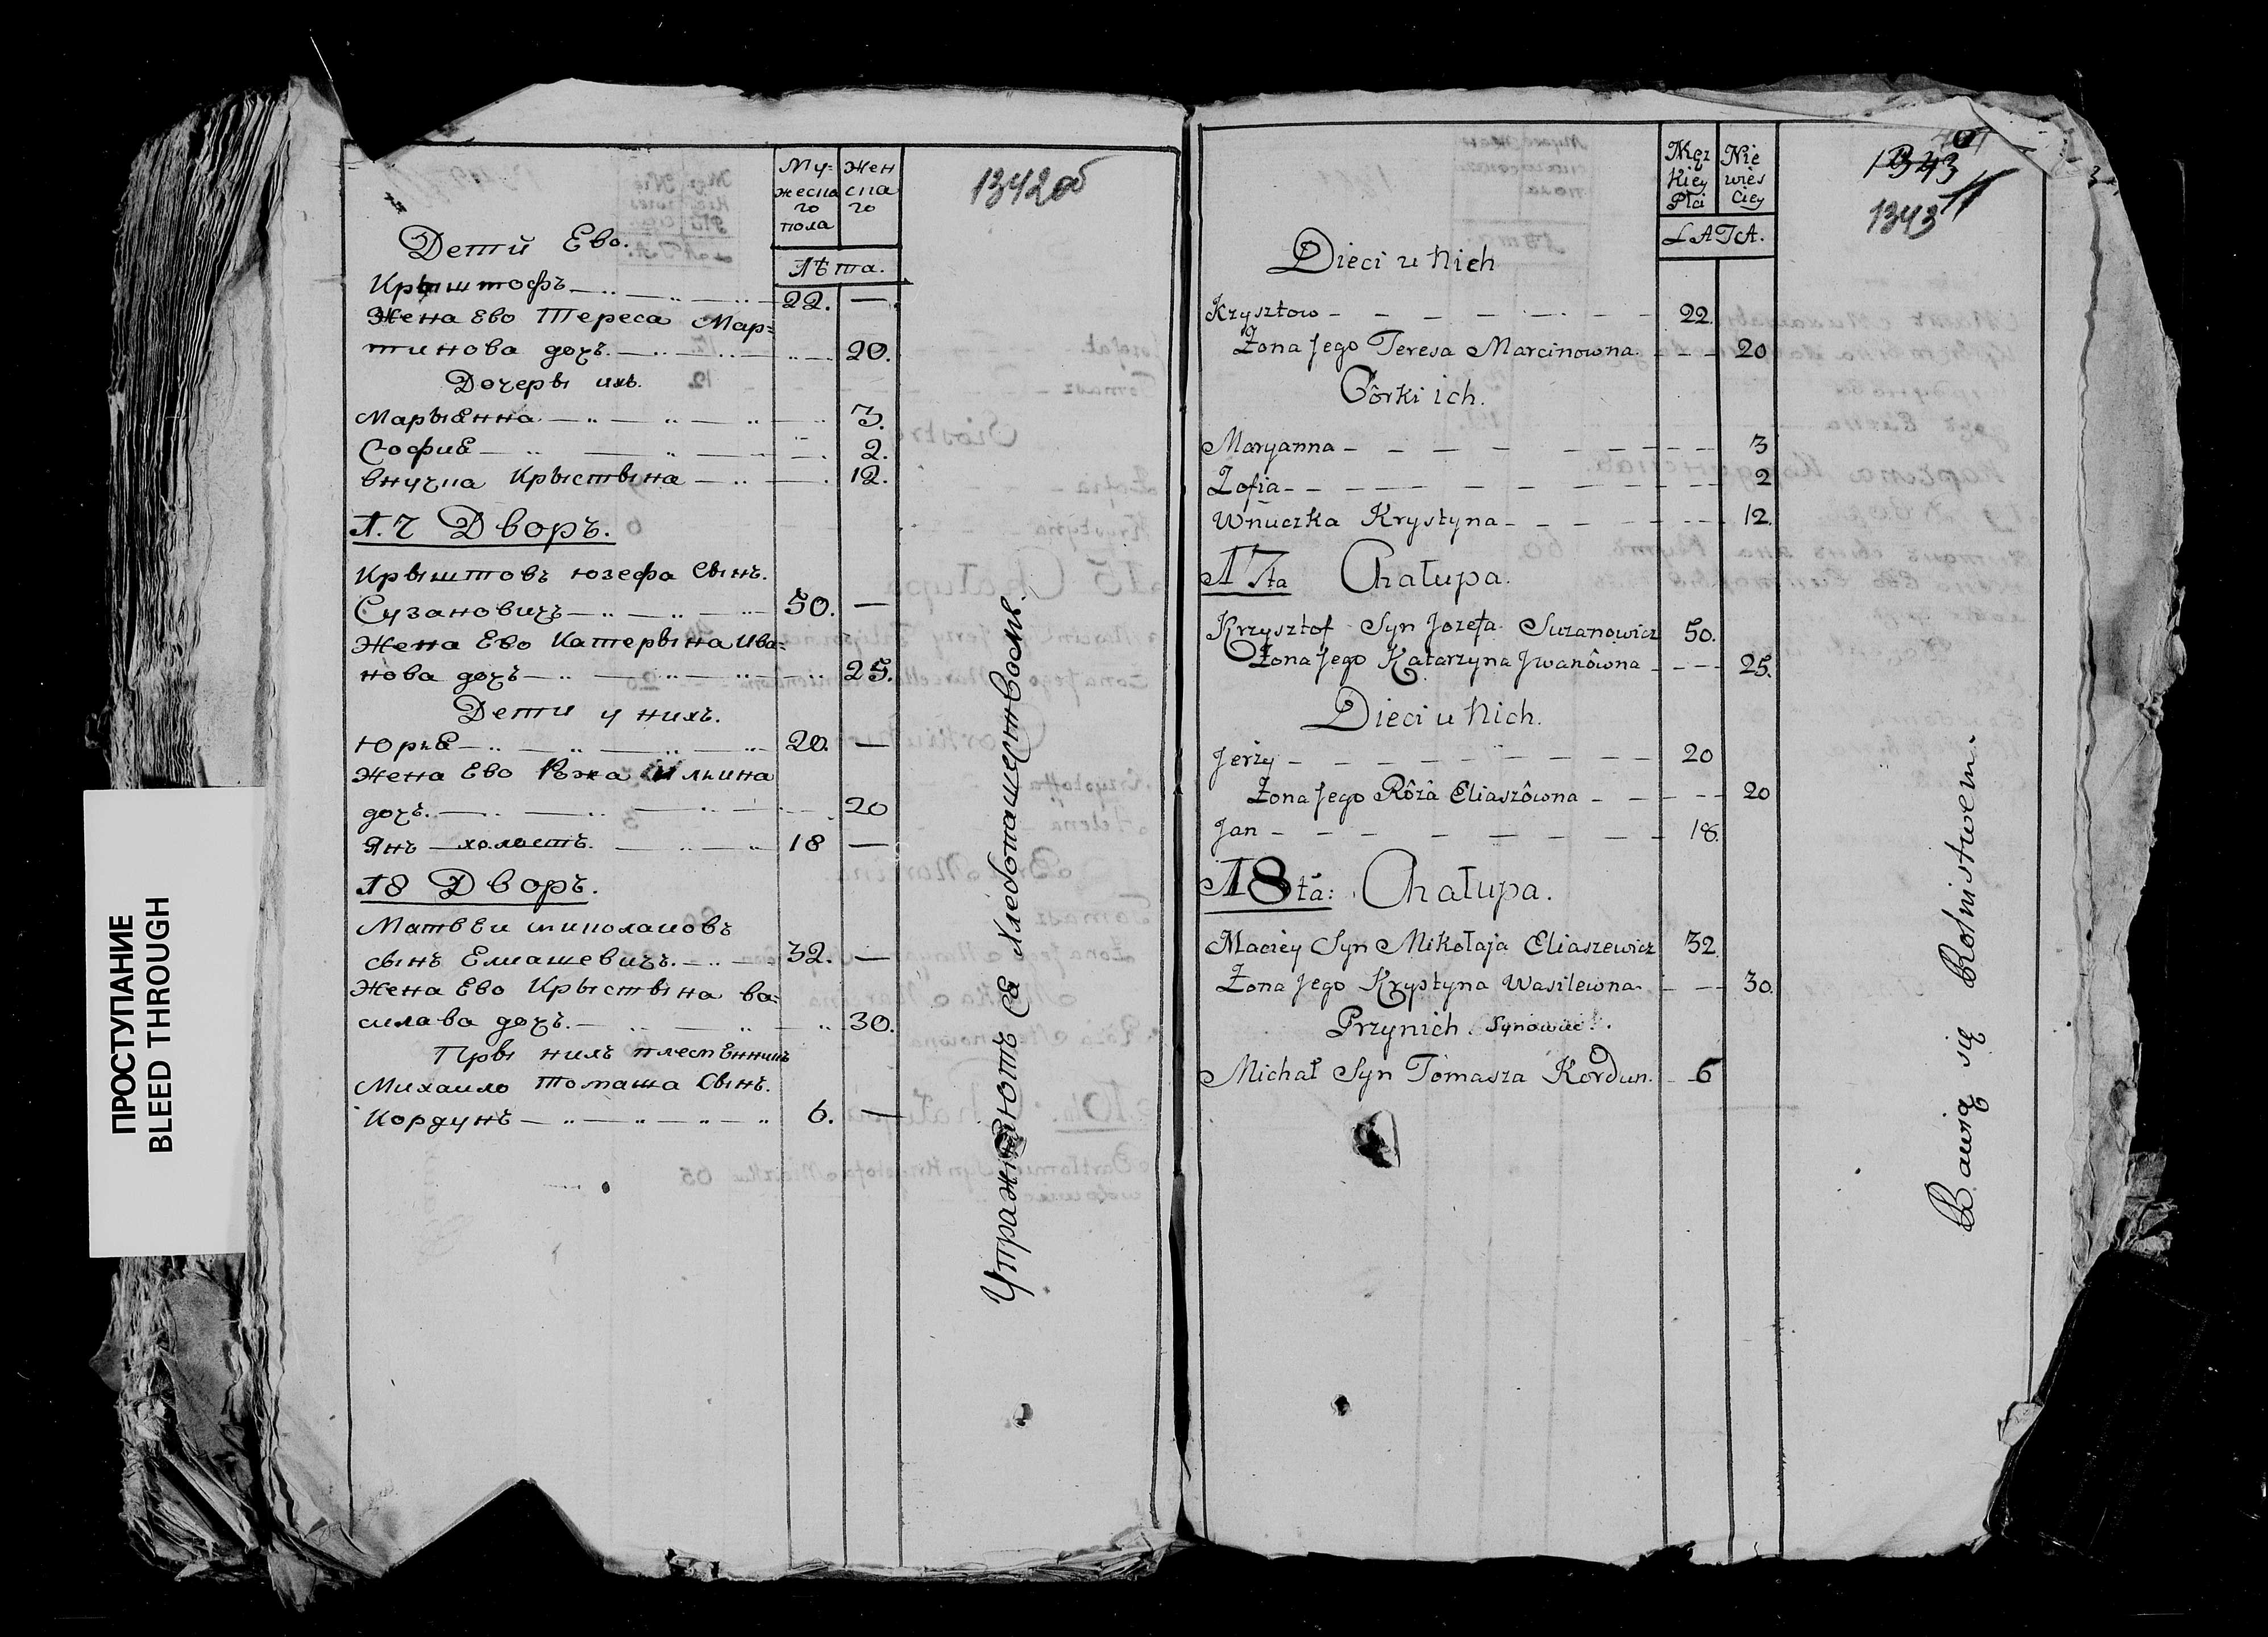 ПРОСТУПАНИЕ
BLEED THROUGH
Му-
жеспа
го
пола
Жен
спа
го
Лѣта.
1342об
Дети Ево.
Крыштофъ 22. —
Жена Ево Тереса Мар=
тинова дочъ. 20.
Дочеры ихъ.
Марыѣнна 3.
Софиѣ 2.
внучка Крыстына 12.
17 Дворъ.
Крыштовъ юзефа сынъ.
Сузановичъ 50. —
Жена Ево Катерына Ива=
нова дочъ 25.
Дети у нихъ.
Юрьѣ 20. —
Жена Ево Рожа Ильина
дочъ. 20
Янъ холостъ. 18 —
18 Дворъ.
Матвѣи миколаиовъ
сынъ Елиашевичъ. 32. —
Жена Ево Крыстына ва=
силава дочъ. 30.
Пры нихъ племѣнникъ
Михаило Томаша сынъ.
Кордунъ 6. —
Упражнѣютъ сѣ хлебопашествомъ.
Męz
kiey
Płci
Nie
wies
Ciey
LATA.
1343
1343
Dieci u Nich
Krzysztow 22.
Żona Jego Teresa Marcinowna 20
Côrki ich.
Maryanna 3
Zofia 2
Wnuczka Krystyna 12.
17ta Chałupa.
Krzysztof Syn Jozefa Suzanowicz 50.
Żona Jego Katarzyna Jwanôwna 25.
Dieci u Nich.
Jerży 20
Żona Jego Rôża Eliaszôwna 20
Jan 18.
18ta: Chałupa.
Maciey Syn Mikołaja Eliaszewicz 32
Żona Jego Krystyna Wasilewna 30.
Przynich Synowiec.
Michał Syn Tomasza Kordun. 6
Bawią się Rolnistwem.